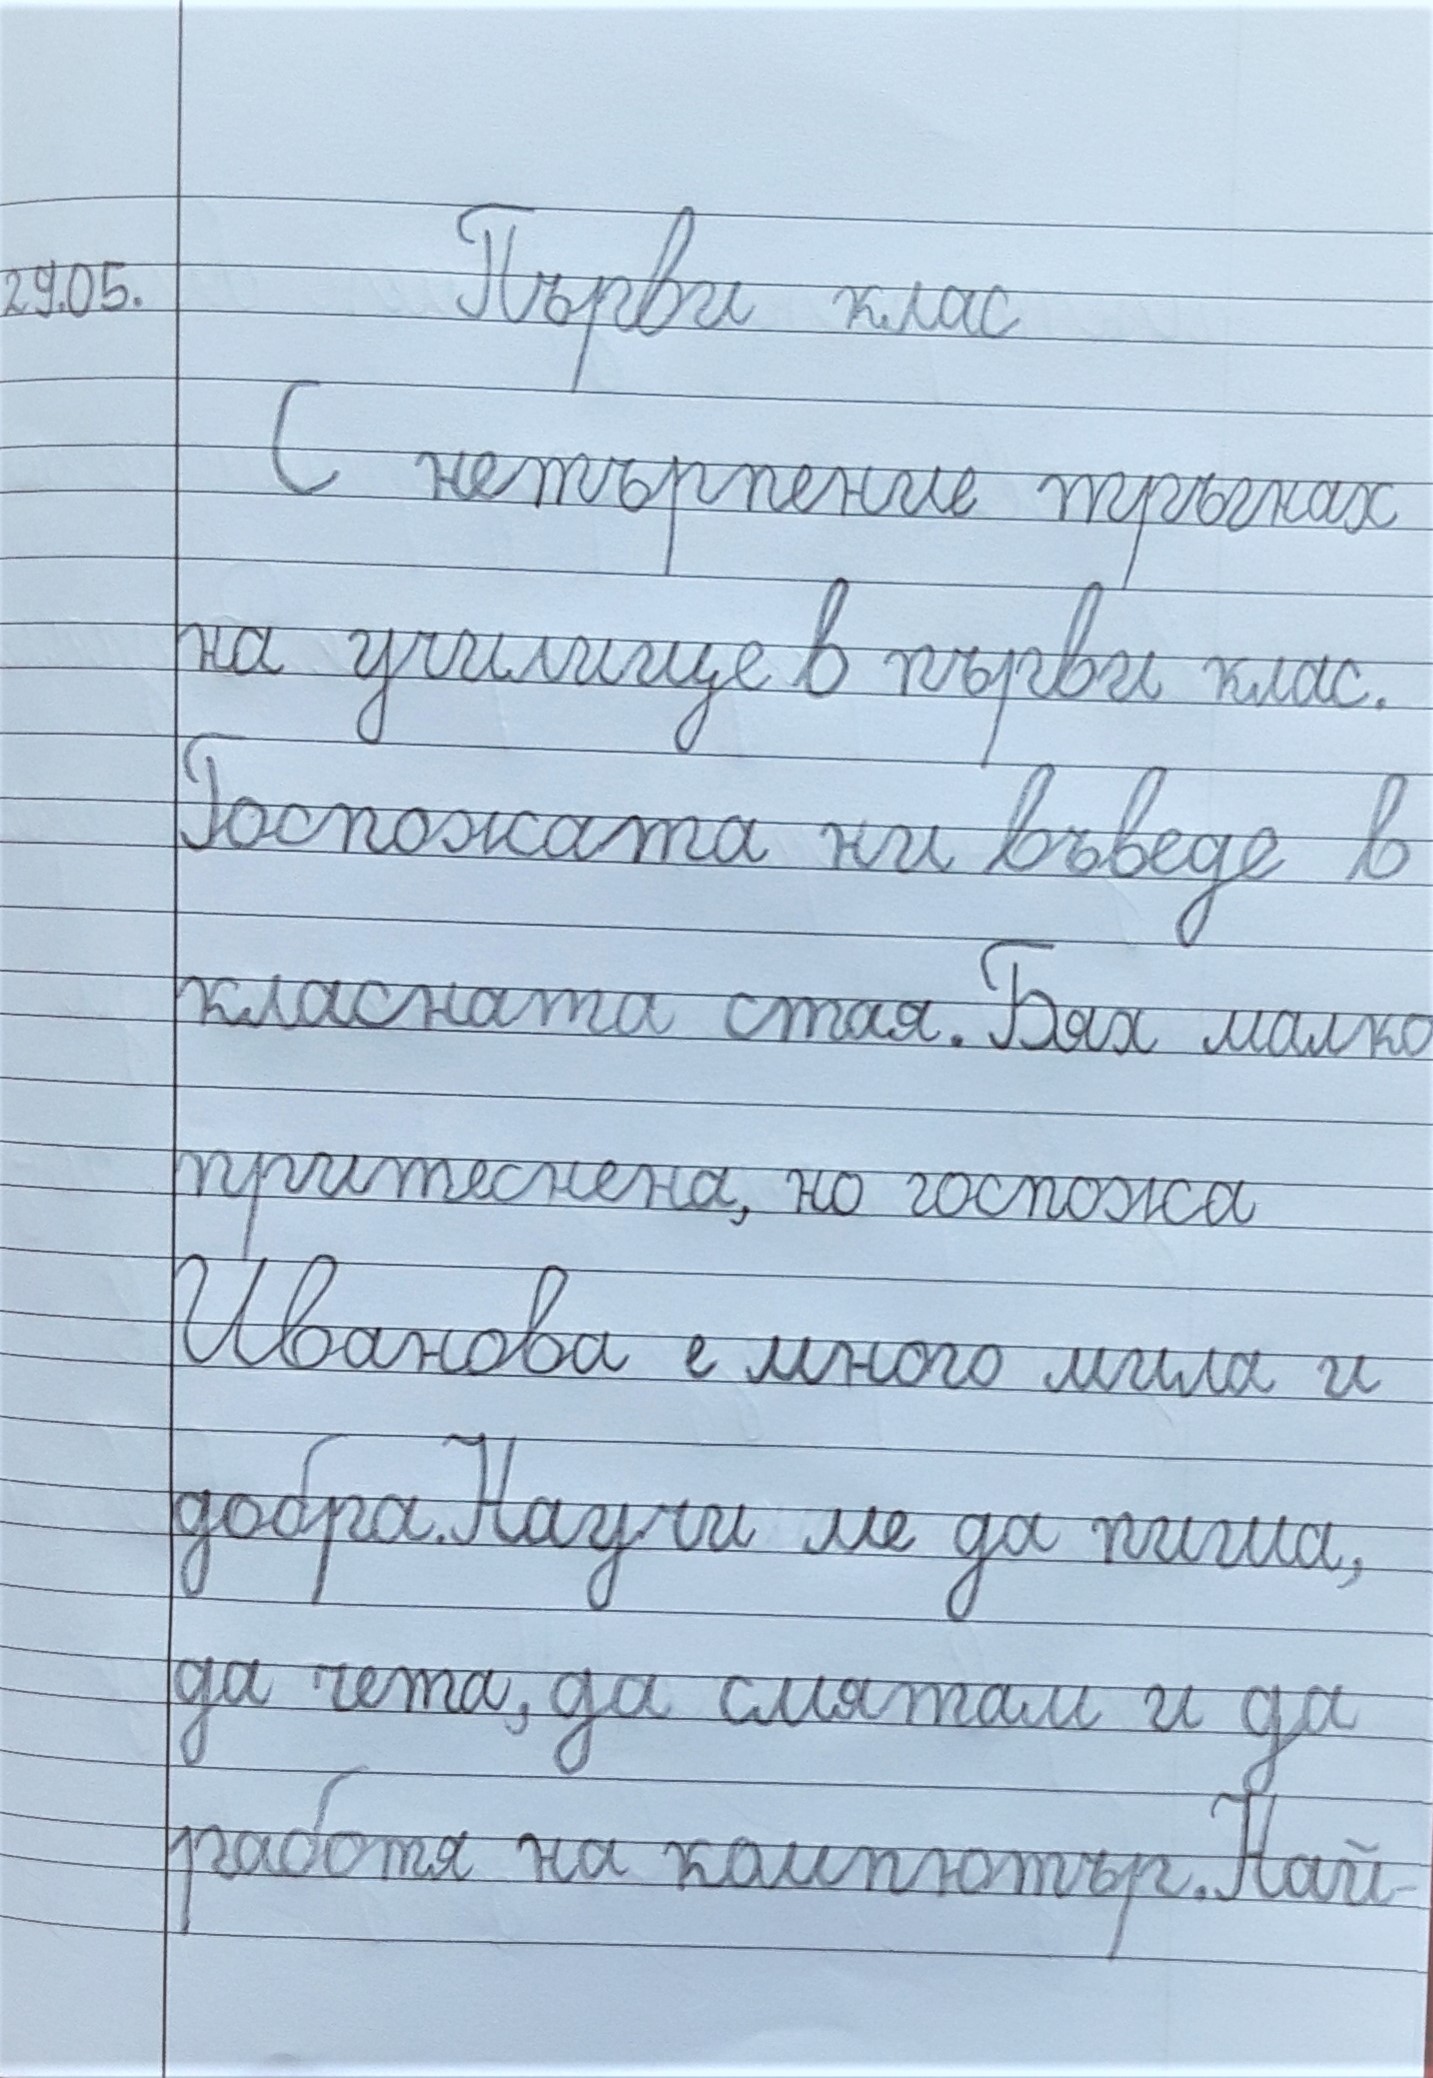 29.05. Първи клас
С нетърпение тръгнах
на училище в първи клас.
Госпожата ни въведе в
класната стая. Бях малко
притеснена, но госпожа
Иванова е много мила и
добра. Научи ме да пиша,
да чета, да смятам и да
работя на компютър. Най-